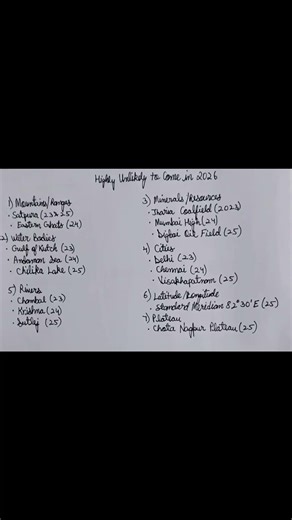 Highly Unlikely to Come in 2026
1) Mountains/Ranges
• Satpura (23 & 25)
• Eastern Ghats (24)
2) Water Bodies
• Gulf of Kutch (23)
• Andaman Sea (24)
• Chilika Lake (25)
5) Rivers
• Chambal (23)
• Krishna (24)
• Sutlej (25)
3) Minerals/Resources
• Jharia Coalfield (2023)
• Mumbai High (24)
• Digboi Oil Field (25)
4) Cities
• Delhi (23)
• Chennai (24)
• Visakhapatnam (25)
6) Latitude/Longitude
• Standard Meridian 82°30'E (25)
7) Plateau
• Chota Nagpur Plateau (25)